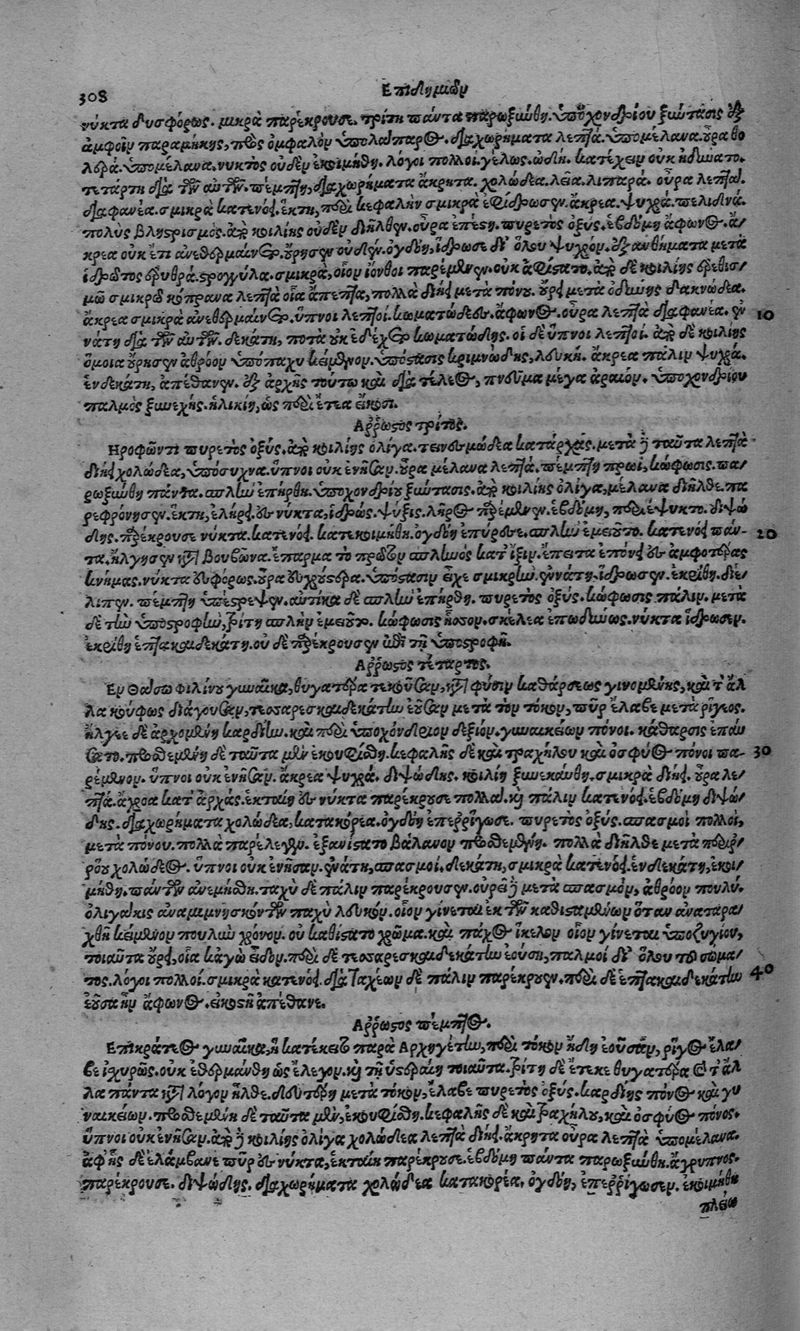 308 Ἐπιδημιῶν
νύκτα δυσφόρως. μικρὰ παρέκρουσε. τρίτῃ πάντα παρωξύνθη. ὑποχονδρίου ξύντασις ἐξ
ἀμφοῖν παραμήκης, πρὸς ὀμφαλὸν ὑπολάπαρος. διαχωρήματα λεπτά. ὑπομέλανα. οὖρα θο
λερά. ὑπομέλανα. νυκτὸς οὐδὲν ἐκοιμήθη. λόγοι πολλοί. γέλως. ᾠδή. κατέχειν οὐκ ἠδύνατο.
τετάρτῃ διὰ τῶν αὐτῶν. πέμπτῃ, διαχωρήματα ἄκρητα. χολώδεα. λεῖα. λιπαρά. οὖρα λεπτά.
διαφανέα. σμικρὰ κατενόει. ἕκτῃ, περὶ κεφαλὴν σμικρὰ ἐφίδρωσεν. ἄκρεα ψυχρά. πελιδνά.
πολὺς βληστρισμός. ἀπὸ κοιλίης οὐδὲν διῆλθεν. οὖρα ἐπέστη. πυρετὸς ὀξύς. ἑβδόμῃ ἄφωνος. ἄ/
κρεα οὐκ ἔτι ἀνεθερμαίνετο. οὔρησεν οὐδέν. ὀγδόῃ, ἵδρωσε δι' ὅλου ψυχρόν. ἐξανθήματα μετὰ
ἱδρῶτος ἐρυθρά. στρογγύλα. σμικρά, οἷον ἴονθοι παρέμενεν. οὐκ ἀφίστατο. ἀπὸ δὲ κοιλίης ἐρεθισ/
μῷ σμικρῷ κόπρανα λεπτὰ οἷα ἄπεπτα, πολλὰ διῄει μετὰ πόνου. οὔρει μετ' ὀδύνης δακνώδεα.
ἄκρεα σμικρὰ ἀνεθερμαίνετο. ὕπνοι λεπτοί. κωματώδεες. ἄφωνος. οὖρα λεπτὰ διαφανέα. ἐν 10
νάτῃ διὰ τῶν αὐτῶν. δεκάτῃ, ποτὰ οὐκ ἐδέχετο κωματώδης. οἱ δὲ ὕπνοι λεπτοί. ἀπὸ δὲ κοιλίης
ὅμοια οὔρησεν ἀθρόον ὑπόπαχυ κείμενον. ὑπόστασις κριμνώδης, λευκή. ἄκρεα πάλιν ψυχρά.
ἑνδεκάτῃ, ἀπέθανεν. ἐξ ἀρχῆς τούτῳ καὶ διὰ τέλεος, πνεῦμα μέγα ἀραιόν. ὑποχονδρίου
παλμὸς ξυνεχής. ἡλικίη, ὡς περὶ ἔτεα εἴκοσι.
Ἄρρωστος τρίτος.
Ἡροφῶντι πυρετὸς ὀξύς. ἀπὸ κοιλίης ὀλίγα. τεινεσμώδεα κατάρχάς. μετὰ δὲ ταῦτα λεπτὰ
διῄει χολώδεα, ὑπόσυχνα. ὕπνοι οὐκ ἐνῆσαν. οὖρα μέλανα λεπτά. πέμπτῃ πρωί, κώφωσις. πα/
ρωξύνθη πάντα. σπλὴν ἐπήρθη. ὑποχονδρίου ξύντασις. ἀπὸ κοιλίης ὀλίγα, μέλανα διῆλθε. πα
ρεφρόνησεν. ἕκτῃ, ἐλήρει. ἐς νύκτα, ἱδρώς. ψῦξις. λῆρος παρέμενεν. ἑβδόμῃ, περιέψυκτο. διψώ
δης. παρέκρουσε νύκτα. κατενόει. κατεκοιμήθη. ὀγδόῃ ἐπύρεσσε. σπλὴν ἐμειοῦτο. κατενόει πάν/ 20
τα. ἤλγησεν κατὰ βουβῶνα. ἔπαρμα τὸ πρῶτον σπληνὸς κατ' ἴξιν. ἔπειτα ἐπόνει ἐς ἀμφοτέρας
κνήμας. νύκτα εὐφόρως. οὖρα εὐχρούστερα. ὑπόστασιν εἶχε σμικρήν. ἐννάτῃ. ἵδρωσεν. ἐκρίθη. διέ/
λιπεν. πέμπτῃ ὑπέστρεψεν. αὐτίκα δὲ σπλὴν ἐπήρθη. πυρετὸς ὀξύς. κώφωσις πάλιν. μετὰ
δὲ τὴν ὑποστροφὴν, τρίτῃ σπλὴν ἐμειοῦτο. κώφωσις ἧσσον. σκέλεα ἐπωδύνως. νύκτα ἵδρωσεν.
ἐκρίθη ἑπτακαιδεκάτῃ. οὐδὲ παρέκρουσεν ἐν τῇ ὑποστροφῇ.
Ἄρρωστος τέταρτος.
Ἐν Θάσῳ Φιλίνου γυναῖκα, θυγατέρα τεκοῦσαν, κατὰ φύσιν καθάρσεως γινομένης, καὶ τὰ ἄλ
λα κούφως διάγουσαν, τεσσαρεσκαιδεκάτην ἐοῦσαν μετὰ τὸν τόκον, πῦρ ἔλαβε μετὰ ῥίγεος.
ἤλγεε δὲ ἀρχομένη καρδίην. καὶ περὶ ὑποχόνδριον δεξιόν. γυναικείων πόνοι. κάθαρσις ἐπαύ
σατο. προσθεμένῃ δὲ ταῦτα μὲν ἐκουφίσθη. κεφαλῆς δὲ καὶ τραχήλου καὶ ὀσφύος πόνοι πα/ 30
ρέμενον. ὕπνοι οὐκ ἐνῆσαν. ἄκρεα ψυχρά. διψώδης. κοιλίη ξυνεκαύθη. σμικρὰ διῄει. οὖρα λε/
πτά. ἄχροα κατ' ἀρχάς. ἑκταίη ἐς νύκτα παρέκρουσε πολλά. καὶ πάλιν κατενόει. ἑβδόμῃ διψώ/
δης. διαχωρήματα χολώδεα, κατακορέα. ὀγδόῃ ἐπερρίγωσε. πυρετὸς ὀξύς. σπασμοὶ πολλοί,
μετὰ πόνου. πολλὰ παρέλεγεν. ἐξανίστατο βάλανον προσθεμένη. πολλὰ διῆλθε μετὰ περιρ/
ρόου χολώδεος. ὕπνοι οὐκ ἐνῆσαν. ἐνάτῃ, σπασμοί. δεκάτῃ, σμικρὰ κατενόει. ἑνδεκάτῃ, ἐκοι/
μήθη. πάντων ἀνεμνήσθη. ταχὺ δὲ πάλιν παρέκρουσεν. οὔρει δὲ μετὰ σπασμῶν, ἀθρόον πουλύ.
ὀλιγάκις ἀναμιμνησκόντων παχὺ λευκόν. οἷον γίνεται ἐκ τῶν καθισταμένων ὅταν ἀναταρα/
χθῇ κείμενον πουλὺν χρόνον. οὐ καθίστατο χρῶμα. καὶ πάχος ἴκελον οἷον γίνεται ὑποζυγίου,
τοιαῦτα οὔρει, οἷα κἀγὼ εἶδον. περὶ δὲ τεσσαρεσκαιδεκάτην ἐούσῃ, παλμοὶ δι' ὅλου τοῦ σώμα/
τος. λόγοι πολλοί. σμικρὰ κατενόει. διὰ ταχέων δὲ πάλιν παρέκρουσεν. περὶ δὲ ἑπτακαιδεκάτην 40
ἐοῦσα ἦν ἄφωνος. εἰκοστῇ ἀπέθανε.
Ἄρρωστος πέμπτος.
Ἐπικράτεος γυναῖκα, ἣ κατέκειτο παρὰ Ἀρχηγέτην, περὶ τόκον ἤδη ἐοῦσαν, ῥῖγος ἔλα/
βε ἰσχυρῶς. οὐκ ἐθερμάνθη ὡς ἔλεγον. καὶ τῇ ὑστεραίῃ τοιαῦτα. τρίτῃ δὲ ἔτεκε θυγατέρα καὶ τὰ ἄλ
λα πάντα κατὰ λόγον ἦλθε. δευτέρῃ μετὰ τόκον, ἔλαβε πυρετὸς ὀξύς. καρδίης πόνος καὶ γυ
ναικείων. προσθεμένῃ δὲ ταῦτα μὲν, ἐκουφίσθη. κεφαλῆς δὲ καὶ τραχήλου, καὶ ὀσφύος πόνος.
ὕπνοι οὐκ ἐνῆσαν. ἀπὸ δὲ κοιλίης ὀλίγα χολώδεα λεπτὰ διῄει. ἄκρητα οὖρα λεπτὰ ὑπομέλανα.
ἀφ' ἧς δὲ ἐλάμβανε πῦρ ἐς νύκτα, ἑκταίη παρέκρουσε. ἑβδόμῃ πάντα παρωξύνθη. ἄγρυπνος.
παρέκρουσε. διψώδης. διαχωρήματα χολώδεα κατακορέα, ὀγδόῃ, ἐπερρίγωσεν. ἐκοιμήθη
πλέω